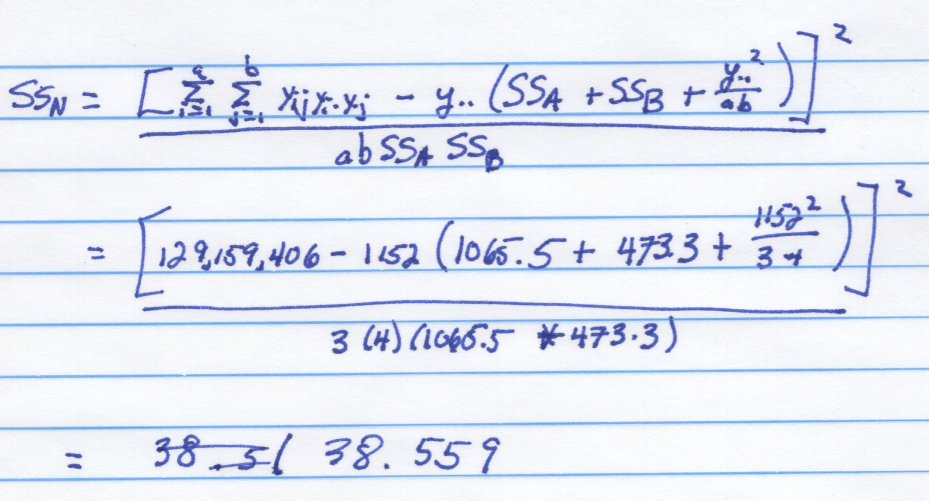 SS_N = [ Σ_{i=1}^{a} Σ_{j=1}^{b} y_{ij} y_{i.} y_{.j} - y.. (SS_A + SS_B + y..²/ab) ]²
ab SS_A SS_B
= [ 129,159,406 - 1152 (1065.5 + 473.3 + 1152²/3·4) ]²
3 (4) (1065.5 * 473.3)
= 38.51 38.559